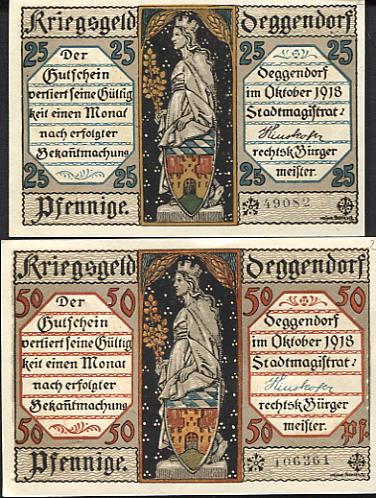 Kriegsgeld Deggendorf
25 25 25 25
Der
Gutschein
verliert seine Gültig
keit einen Monat
nach erfolgter
Bekañtmachung
25 25
Pfennige.
Deggendorf
im Oktober 1918
Stadtmagistrat:
rechtsk Bürger
meister.
25 25
49082
Kriegsgeld Deggendorf
50 50 50 50
Der
Gutschein
verliert seine Gültig
keit einen Monat
nach erfolgter
Bekañtmachung
50 50
Pfennige.
Deggendorf
im Oktober 1918
Stadtmagistrat:
rechtsk Bürger
meister.
50 Pf.
106361